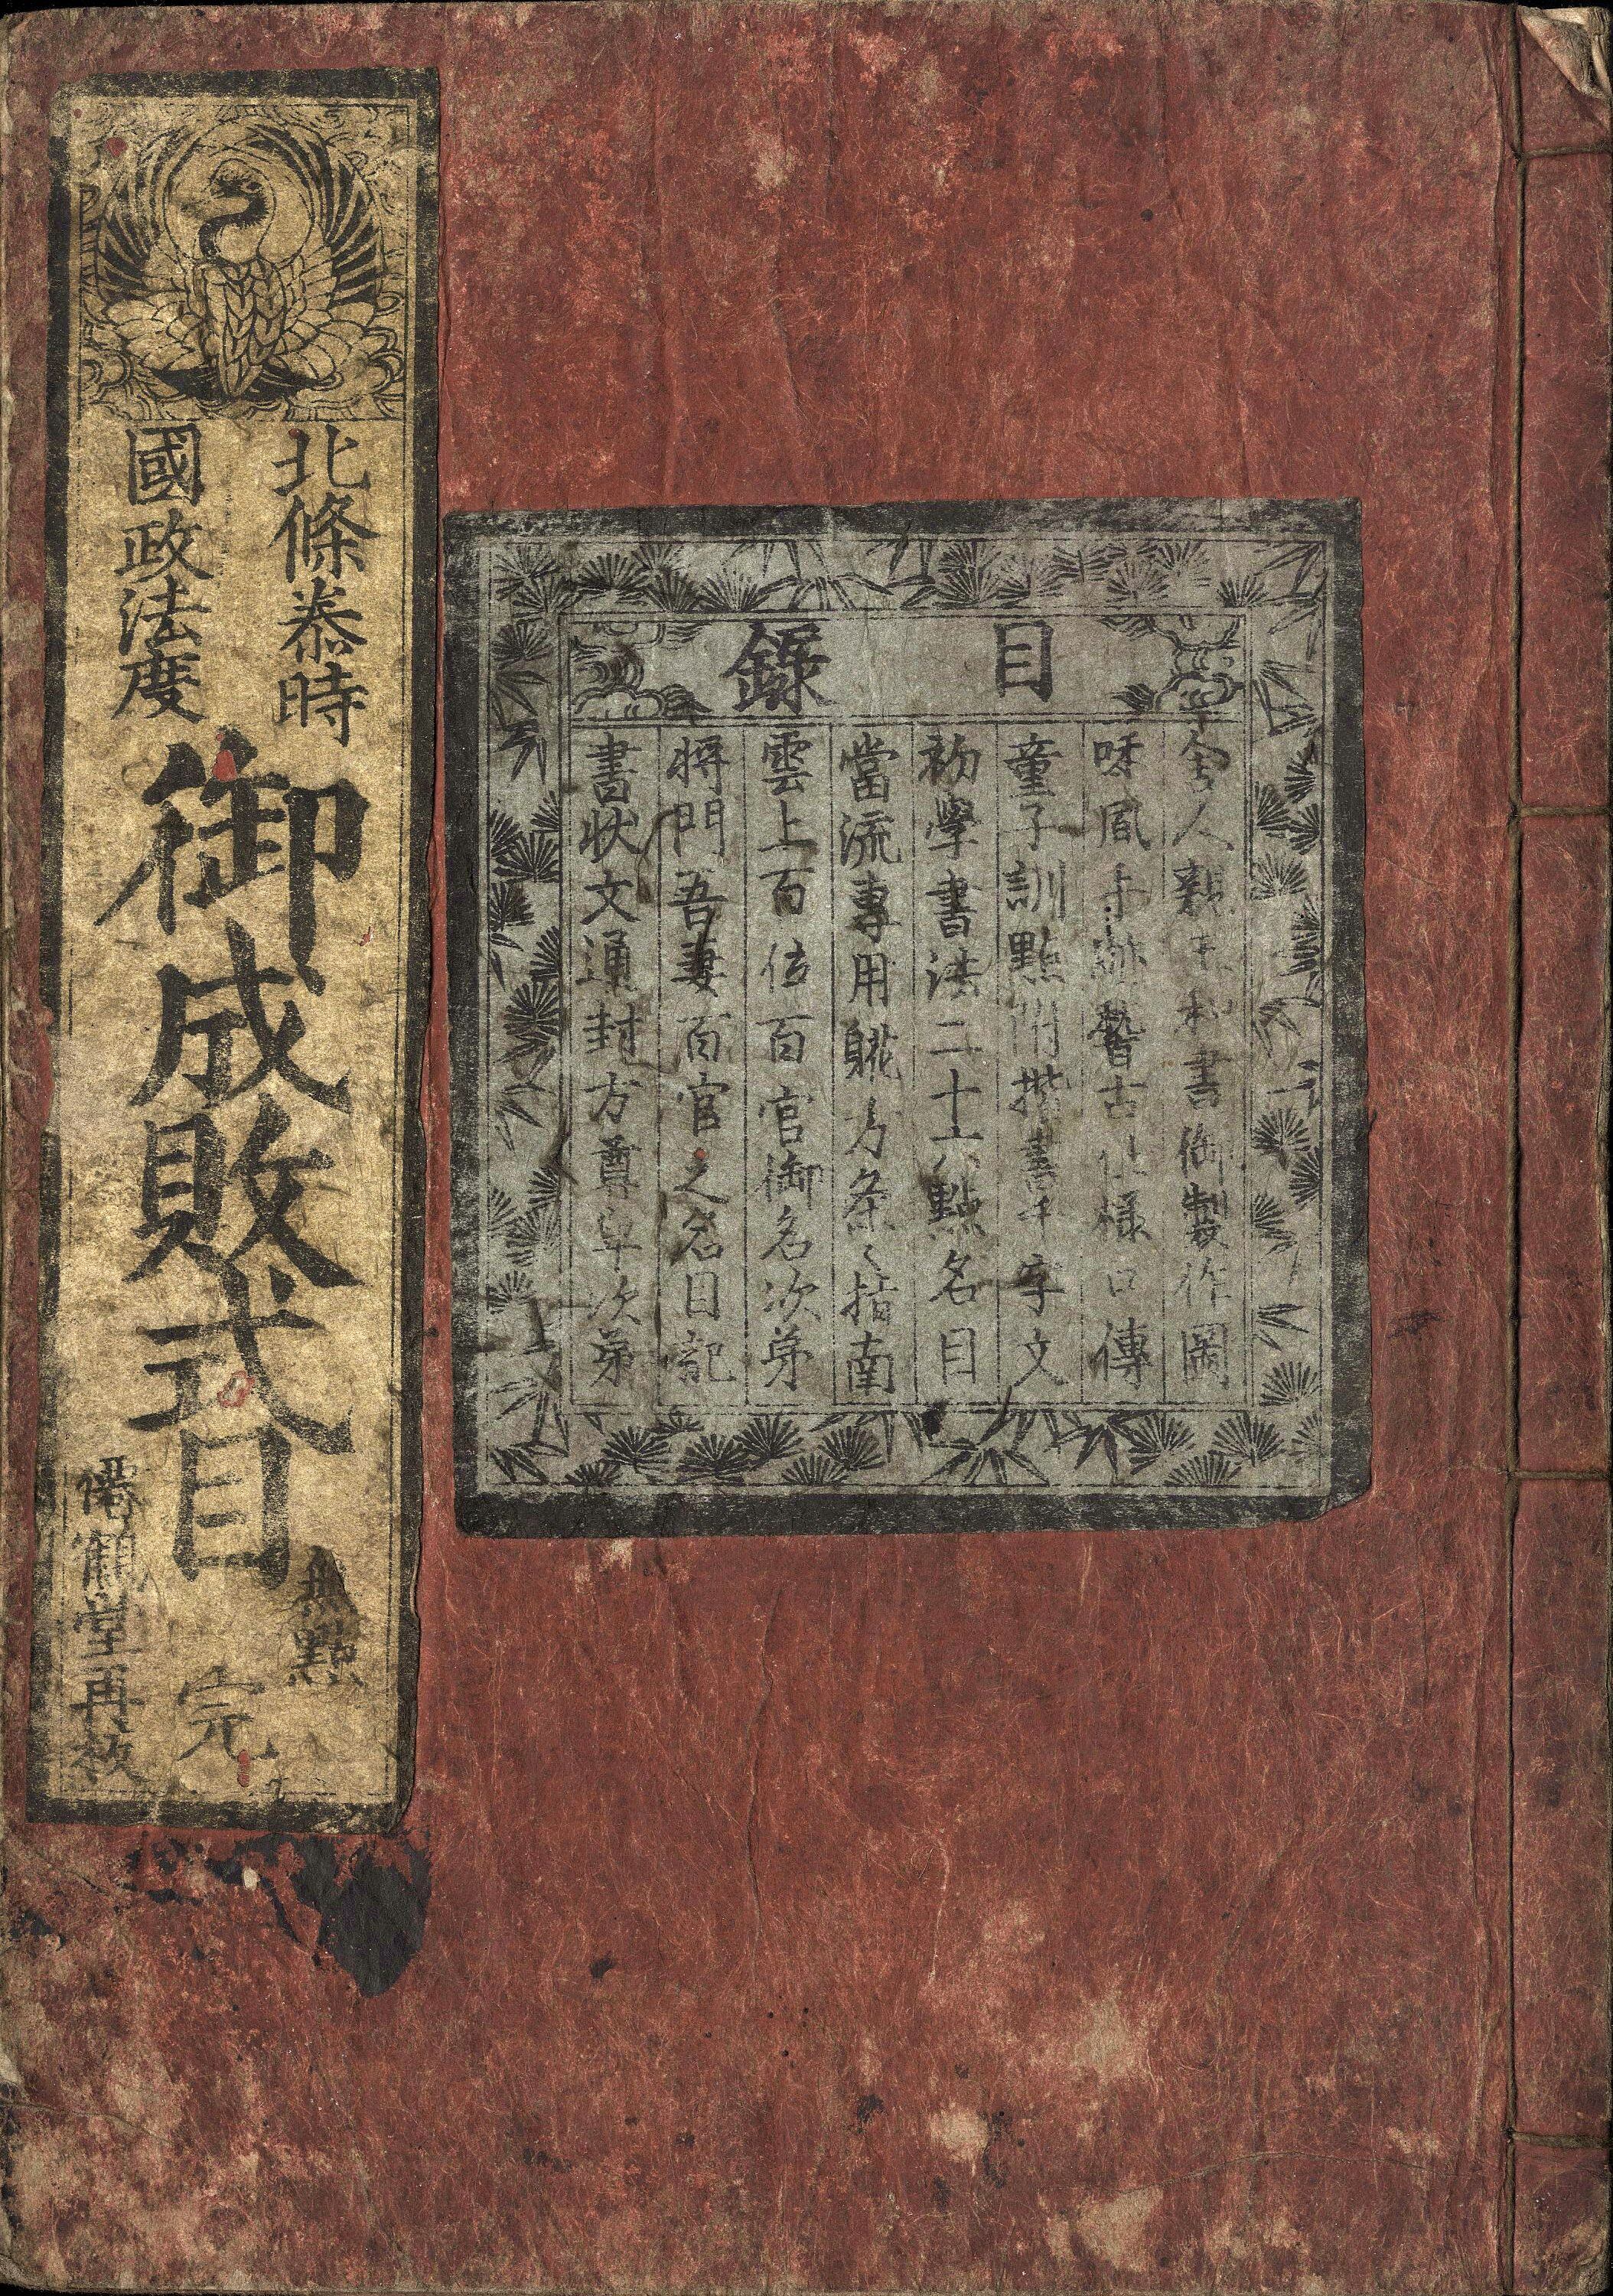 目録
舎人親王和書御製作圖
手跡稽古仕様口傳
童子訓點附楷書千字文
初學書法二十六點名目
當流專用躾方条々指南
雲上百位百官御名次第
将門吾妻百官之名目記
書状文通封方尊卑次第
北條泰時
國政法度
御成敗式目
無點
完
僊鶴堂再板